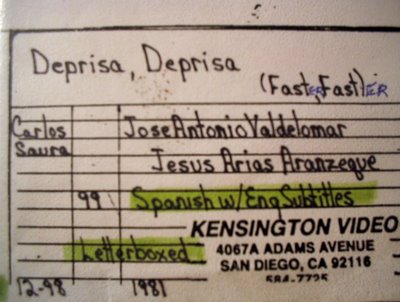 Deprisa, Deprisa
(Faster, Faster)
Carlos Saura
Jose Antonio Valdelomar
Jesus Arias Aranzeque
99 Spanish w/Eng Subtitles
KENSINGTON VIDEO
Letterboxed 4067A ADAMS AVENUE
SAN DIEGO, CA 92116
584-7725
12-98 1981